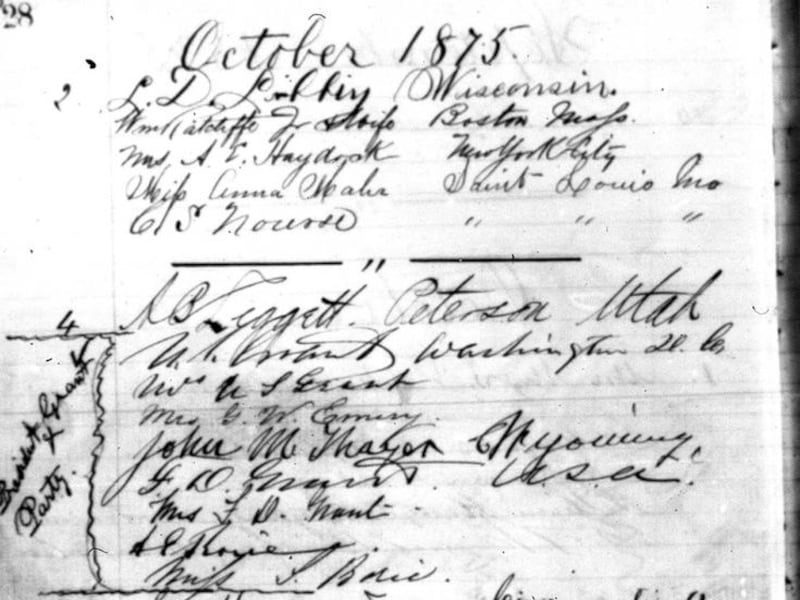 28
October 1875.
2 L. D. Libbey Wisconsin.
Wm Ratcliffe Jr & Wife Boston Mass.
Mrs. A. E. Haydock New York City
Miss Anna Mahr Saint Louis Mo
C S Nourse " " "
"
4 A B Leggett. Peterson Utah
U. S. Grant Washington D. C.
Mrs U S Grant
Mrs G. W. Emery.
John M Thayer Wyoming.
F. D. Grant. U.S.A.
Mrs F. D. Grant.
A E Borie
Miss S. Borie.
President Grant & Party.